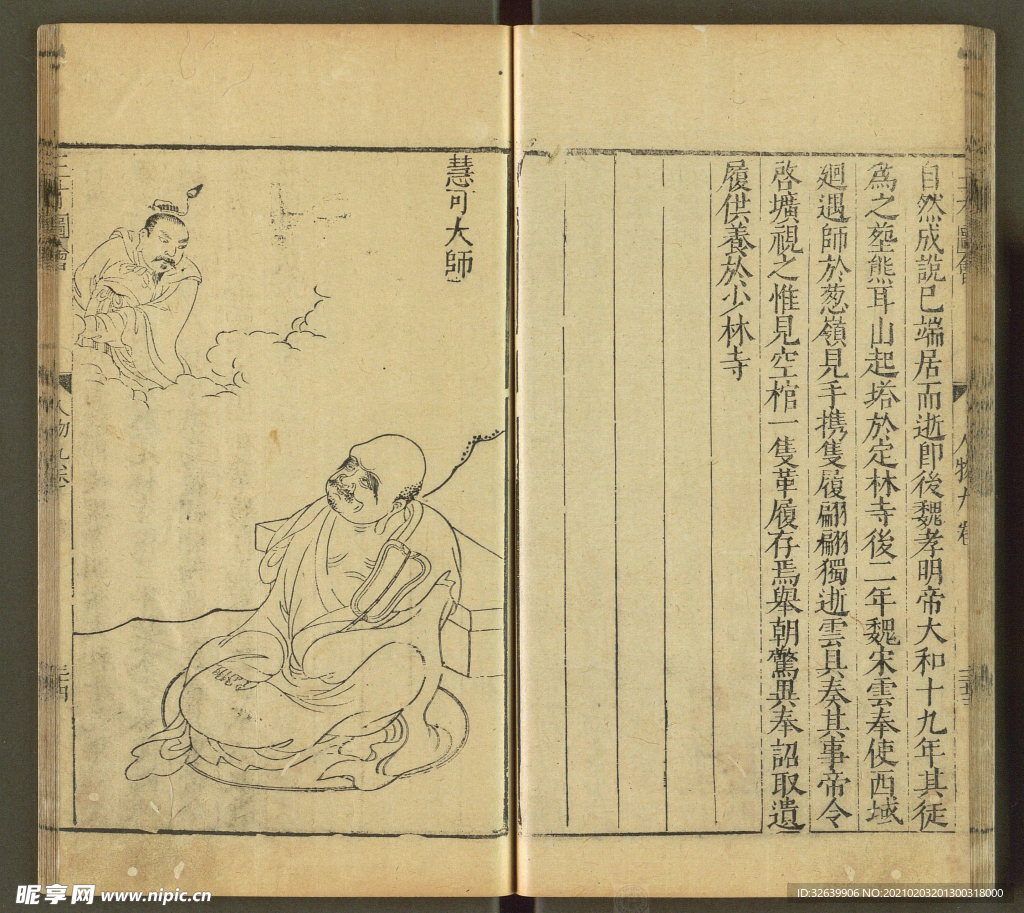 自然成說已端居而逝卽後魏孝明帝大和十九年其徒
爲之塟熊耳山起塔於定林寺後二年魏宋雲奉使西域
廻遇師於葱嶺見手携隻履翩翩獨逝雲具奏其事帝令
啓壙視之惟見空棺一隻革履存焉舉朝驚異奉詔取遺
履供養於少林寺
慧可大師
人物九卷
昵享网 www.nipic.cn
ID:32639906 NO:20210203201300318000